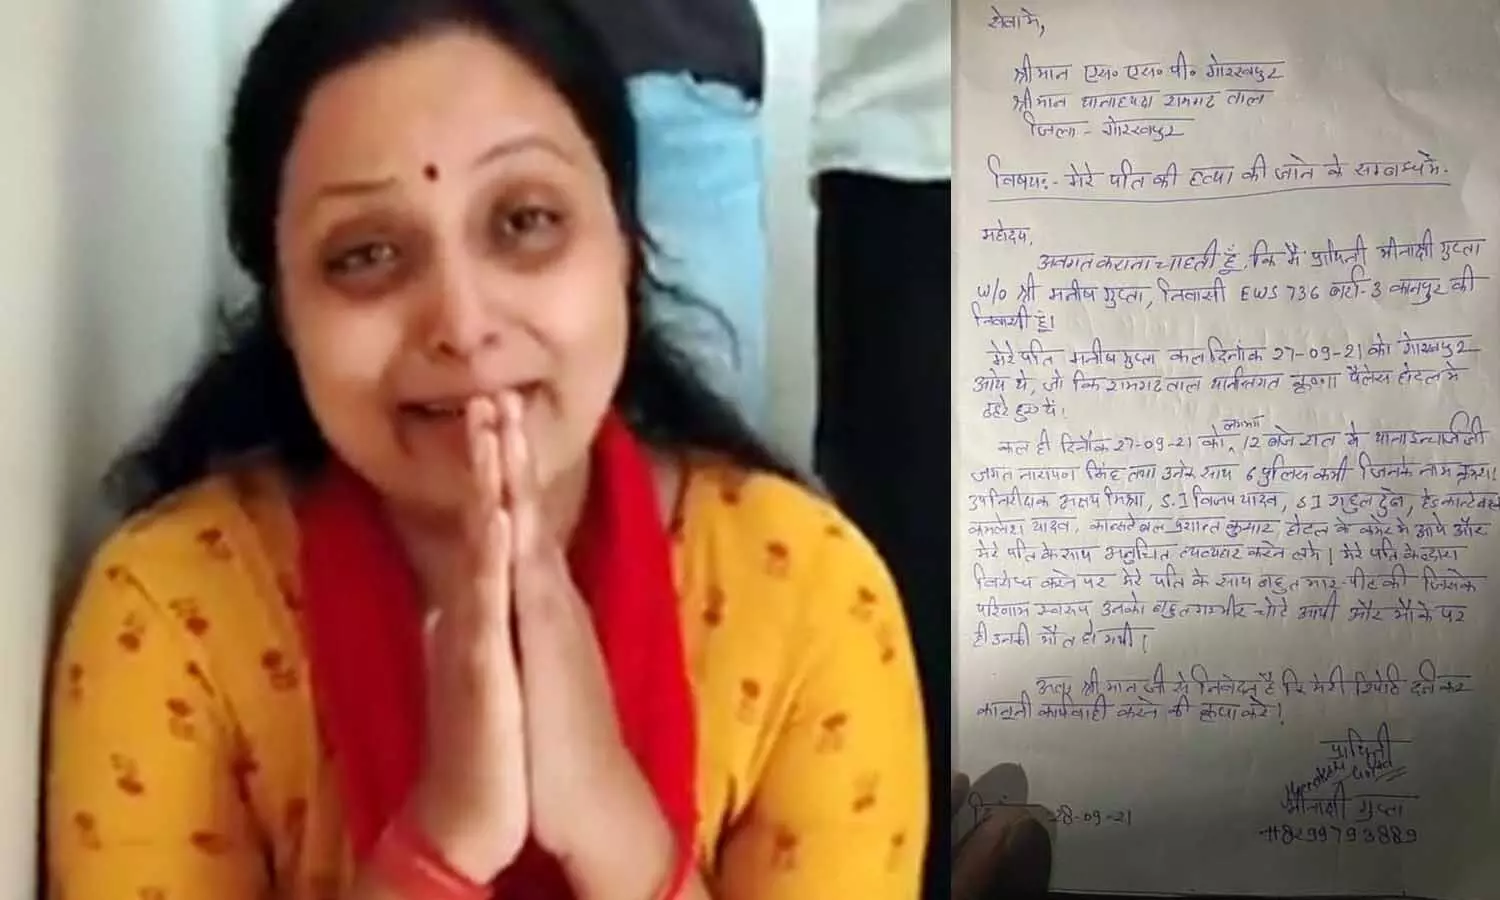 सेवा में,
श्रीमान एस॰ एस॰ पी॰ गोरखपुर
श्रीमान थानाध्यक्ष रामगढ ताल
जिला - गोरखपुर
विषयः- मेरे पति की हत्या की जाने के सम्बन्ध मे.
महोदय,
अवगत कराना चाहती हूँ. कि मै प्रार्थिनी मीनाक्षी गुप्ता
W/o श्री मनीष गुप्ता, निवासी EWS 736 बर्रा-3 कानपुर की
निवासी हूं।
मेरे पति मनीष गुप्ता कल दिनांक 27-09-21 को गोरखपुर
आये थे, जो कि रामगढ ताल थानान्तगत कृष्णा पैलेस होटल मे
ठहरे हुए थे।
कल ही दिनाँक 27-09-21 को, लगभग 12 बजे रात मे थाना इन्चार्ज जी
जगत नारायण सिंह तथा उनके साथ 6 पुलिस कर्मी जिनके नाम क्रमशः
उपनिरीक्षक अक्षय मिश्रा, S.I विजय यादव, S I राहुल दुबे, हेड कान्टेबल
कमलेश यादव, कान्सटेबल प्रशान्त कुमार होटल के कमरे मे आये और
मेरे पति के साथ अनुचित व्यव्यहार करने लगे। मेरे पति के द्वारा
विरोध करने पर मेरे पति के साथ बहुत मार-पीट की जिसके
परिणाम स्वरूप उनको बहुत गम्भीर चोटे आयी और मौके पर
ही उनकी मौत हो गयी।
अतः श्री मान जी से निवेदन है कि मेरी रिपोर्ट दर्ज कर
कानूनी कार्यवाही करने की कृपा करे।
प्रार्थिनी
Meenakshi Gupta
मीनाक्षी गुप्ता
28-09-21
8299793889